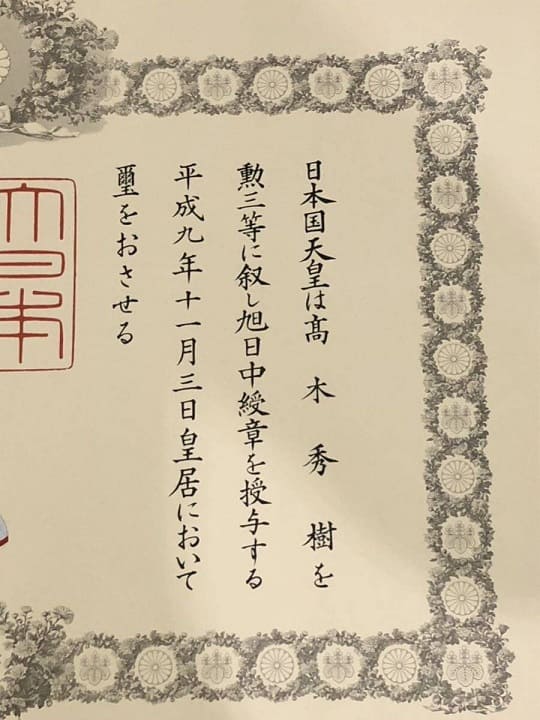 日本国天皇は髙木秀樹を
勲三等に叙し旭日中綬章を授与する
平成九年十一月三日皇居において
璽をおさせる
大日本